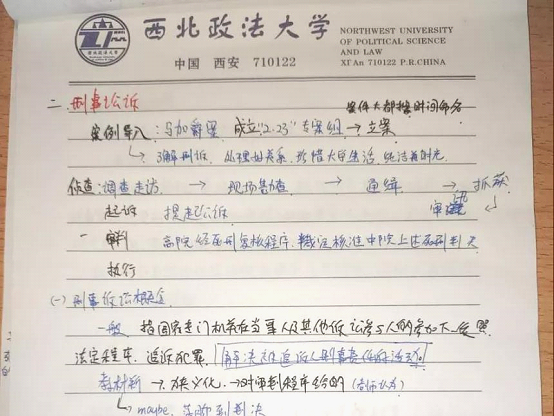 西北政法大学
NORTHWEST UNIVERSITY
OF POLITICAL SCIENCE
AND LAW
中国 西安 710122
XI'An 710122 P.R.CHINA
二、刑事诉讼
案件大都按时间命名
案例导入：马加爵案 成立"2.23"专案组→立案
了解刑诉，处理好关系，珍惜大学生活
侦查：调查走访 → 现场勘查 → 通缉 → 抓获
起诉 提起公诉 审讯
审判 高院经死刑复核程序，裁定核准中院上述死刑判决
执行
(一) 刑事诉讼概念
一般 指国家专门机关在当事人及其他诉讼参与人的参加下，依照
法定程序，追诉犯罪，解决被追诉人刑事责任的活动
教材新→狭义化→对审判程序给的
maybe